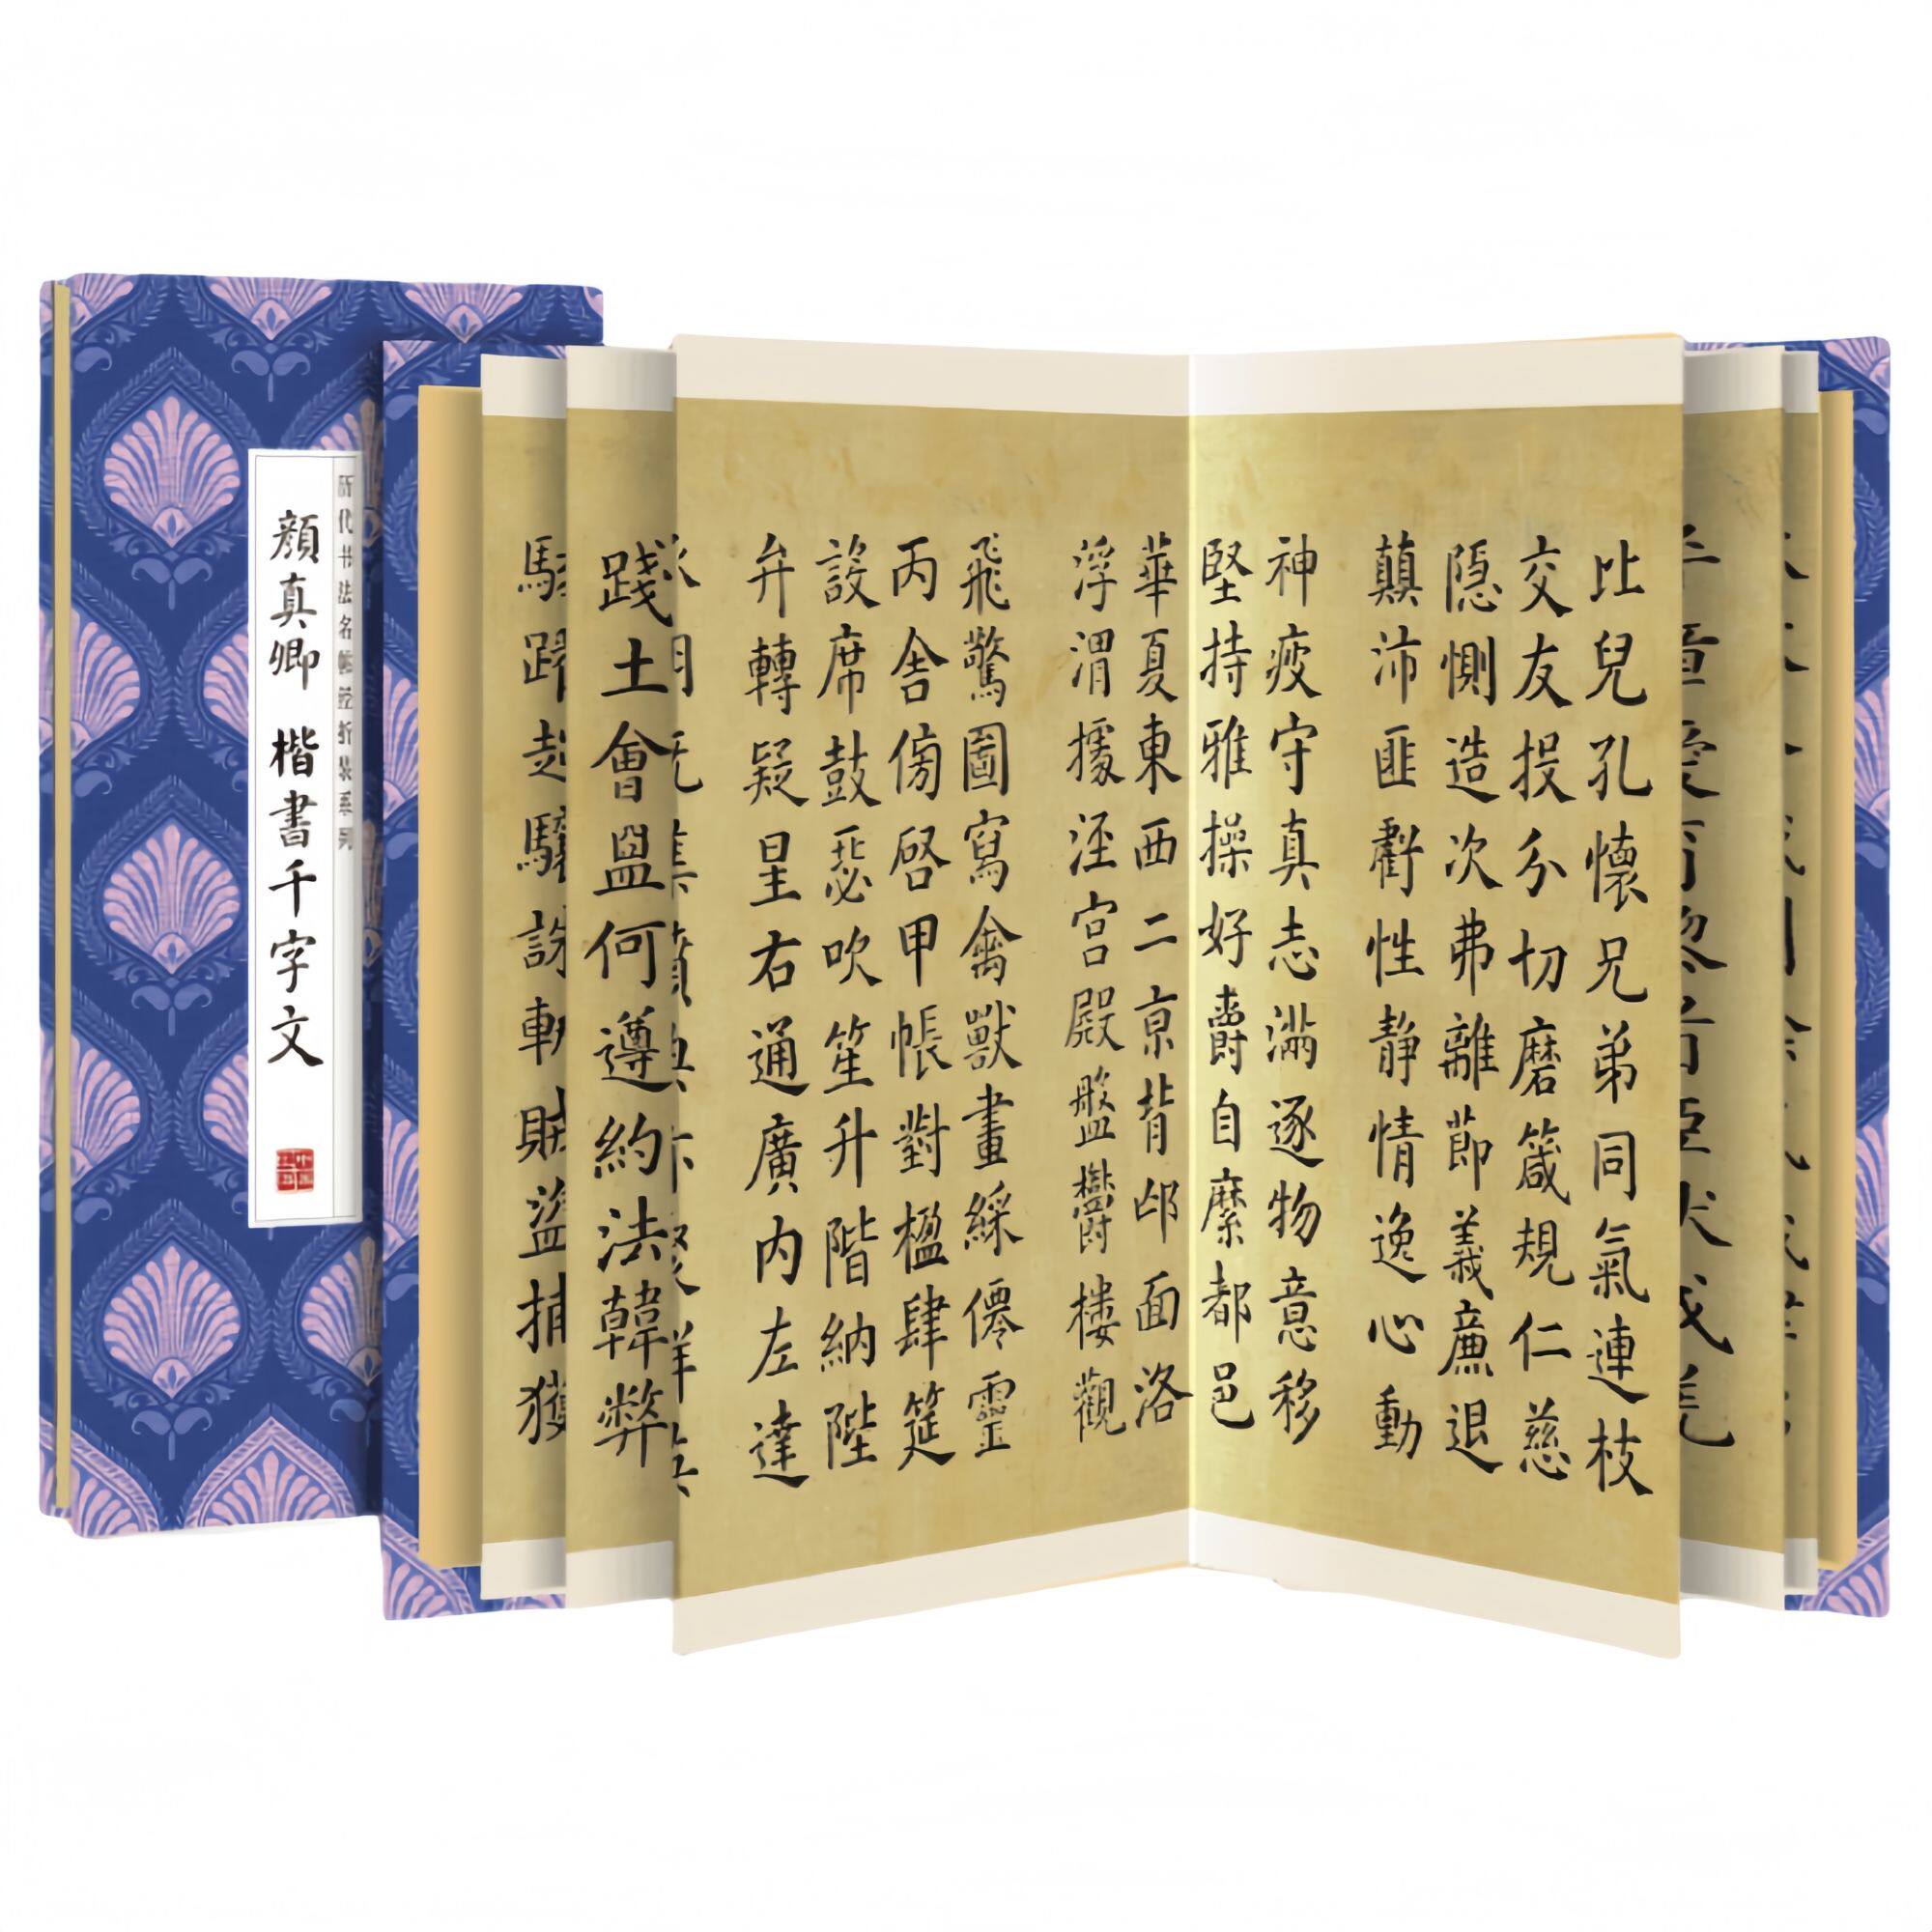 历代书法名帖经折装系列
顔真卿 楷書千字文
比兒孔懷兄弟同氣連枝
交友投分切磨箴規仁慈
隐惻造次弗離節義廉退
顛沛匪虧性静情逸心動
神疲守真志滿逐物意移
堅持雅操好爵自縻都邑
華夏東西二京背邙面洛
浮渭據涇宫殿盤欝樓觀
飛驚圖寫禽獸畫綵僊靈
丙舍傍啓甲帳對楹肆筵
設席鼓瑟吹笙升階納陛
弁轉疑星右通廣内左達
踐土會盟何遵約法韓弊